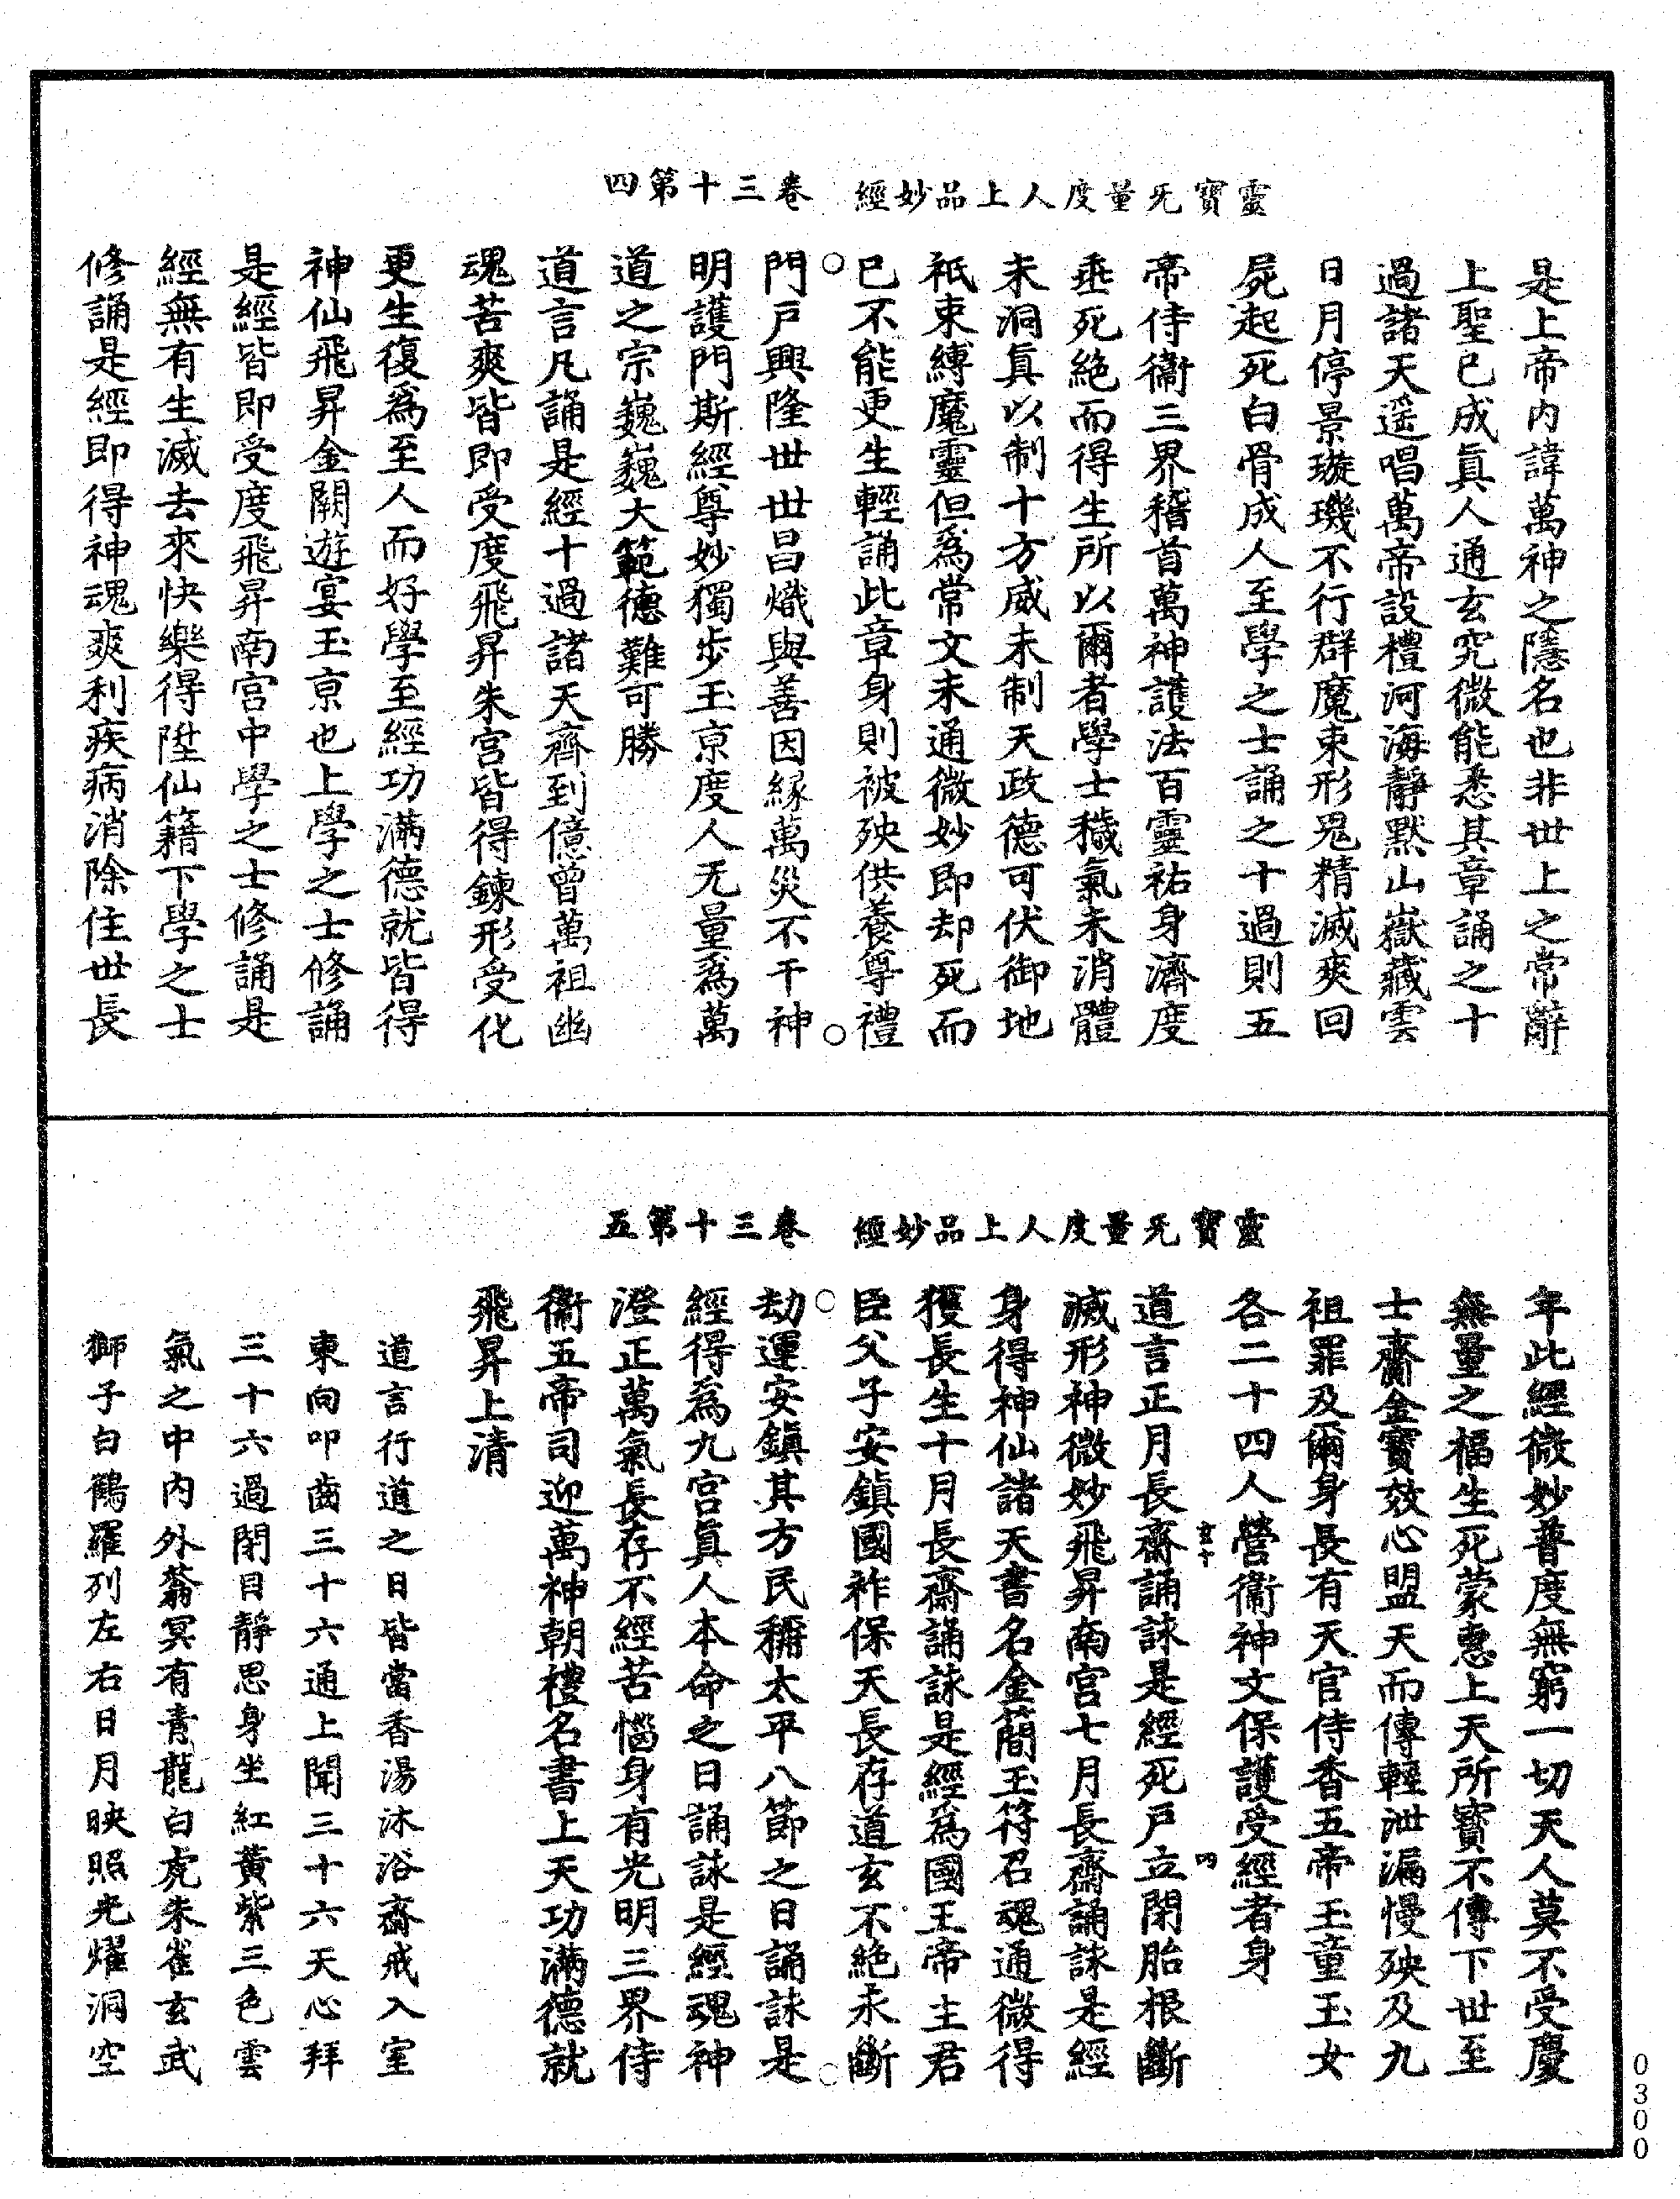 靈寶无量度人上品妙經　卷三十第四
是上帝内諱萬神之隱名也非世上之常辭
上聖已成眞人通玄究微能悉其章誦之十
過諸天遥唱萬帝設禮河海靜黙山嶽藏雲
日月停景璇璣不行群魔束形鬼精滅爽回
屍起死白骨成人至學之士誦之十過則五
帝侍衞三界稽首萬神護法百靈祐身濟度
垂死絶而得生所以爾者學士穢氣未消體
未洞眞以制十方威未制天政德可伏御地
祇束縛魔靈但爲常文未通微妙即却死而
已不能更生輕誦此章身則被殃供養尊禮
門戸興隆世世昌熾與善因縁萬災不干神
明護門斯經尊妙獨步玉亰度人无量爲萬
道之宗巍巍大範德難可勝
道言凡誦是經十過諸天齊到億曾萬祖幽
魂苦爽皆即受度飛昇朱宮皆得鍊形受化
更生復爲至人而好學至經功滿德就皆得
神仙飛昇金闕遊宴玉亰也上學之士修誦
是經皆即受度飛昇南宮中學之士修誦是
經無有生滅去來快樂得陞仙籍下學之士
修誦是經即得神魂爽利疾病消除住世長
靈寶无量度人上品妙經　卷三十第五
年此經微妙普度無窮一切天人莫不受慶
無量之福生死蒙惠上天所寶不傳下世至
士齎金寶效心盟天而傳輕泄漏慢殃及九
祖罪及爾身長有天官侍香五帝玉童玉女
各二十四人營衞神文保護受經者身
玄十　四
道言正月長齋誦詠是經死戸立閉胎根斷
滅形神微妙飛昇南宮七月長齋誦詠是經
身得神仙諸天書名金簡玉符召魂通微得
獲長生十月長齋誦詠是經爲國王帝主君
臣父子安鎭國祚保天長存道玄不絶永斷
劫運安鎭其方民稱太平八節之日誦詠是
經得爲九宮眞人本命之日誦詠是經魂神
澄正萬氣長存不經苦惱身有光明三界侍
衞五帝司迎萬神朝禮名書上天功滿德就
飛昇上清
道言行道之日皆當香湯沐浴齋戒入室
東向叩齒三十六通上聞三十六天心拜
三十六過閉目靜思身坐紅黄紫三色雲
氣之中内外蓊冥有青龍白虎朱雀玄武
獅子白鶴羅列左右日月映照光耀洞空
0300